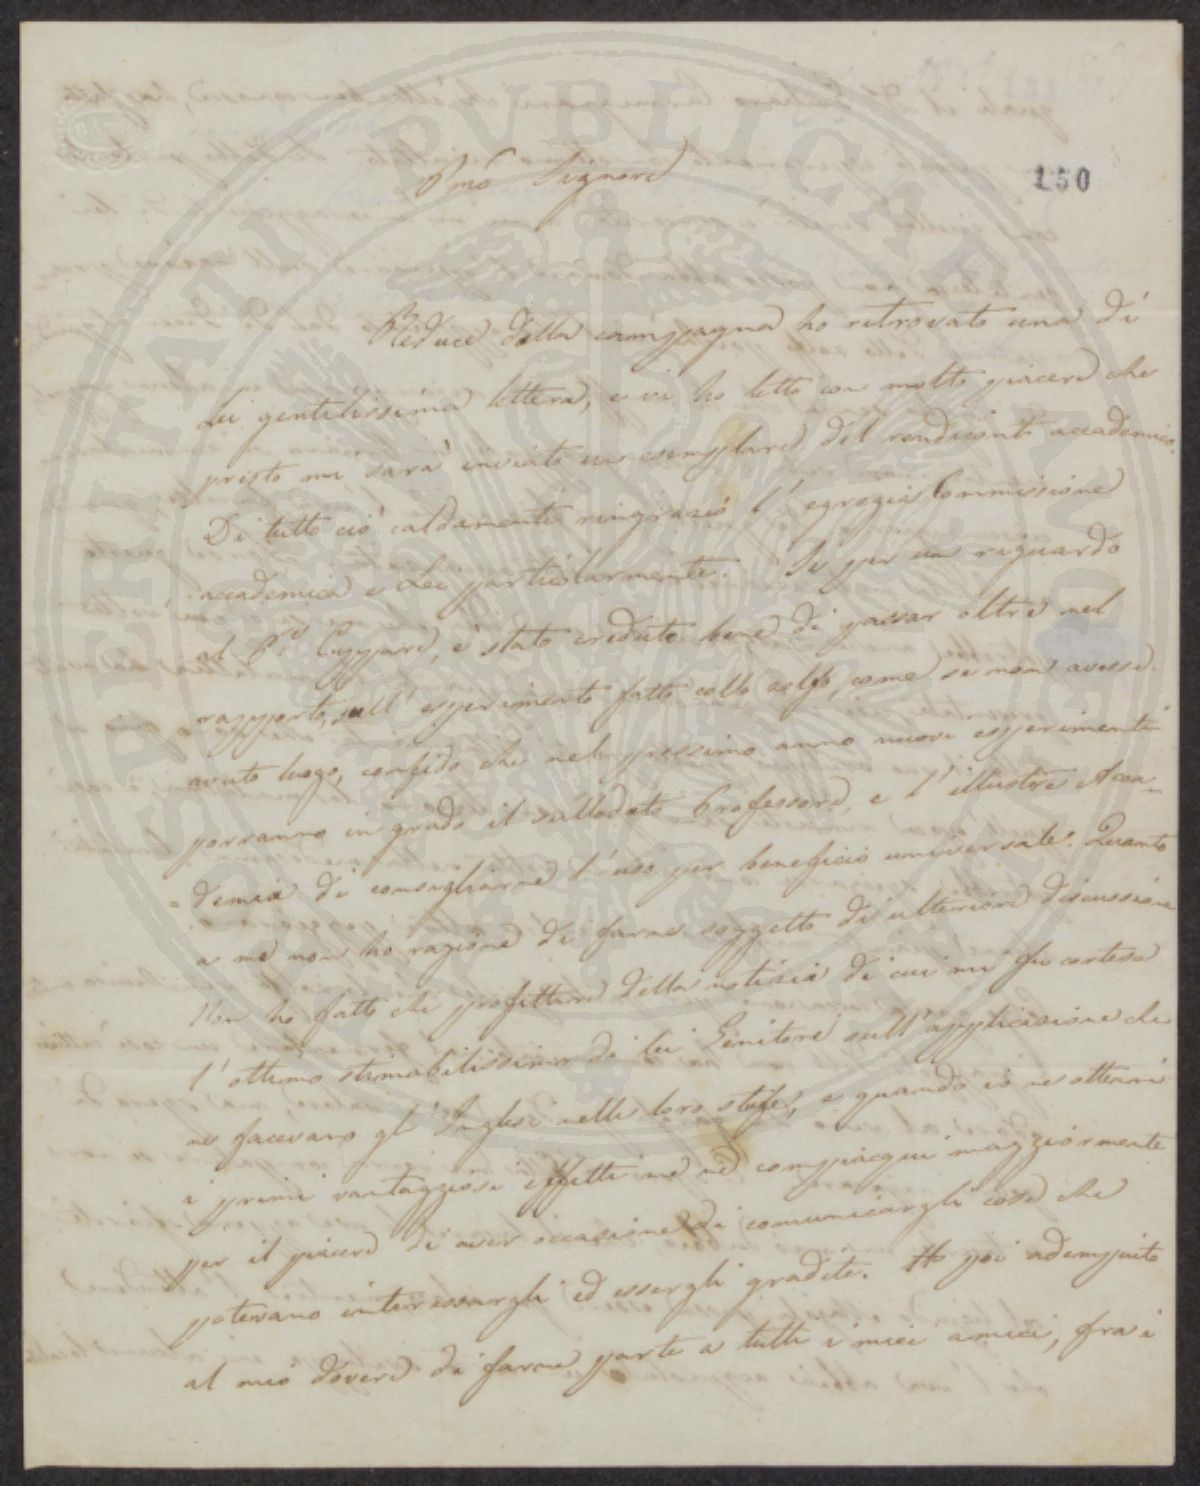 150
Pmo Signore
Reduce dalla campagna ho ritrovato una di
Lei gentilissima lettera, e vi ho letto con molto piacere che
presto mi sarà inviato un esemplare del rendiconto accademico.
Di tutto ciò caldamente ringrazio l'egregia Commissione
accademica e Lei particolarmente. Se per un riguardo
al Pr. Cuppari, è stato creduto bene di passar oltre nel
rapporto, sull'esperimento fatto collo zolfo, come se non avesse
avuto luogo, confido che nel prossimo anno nuovi esperimenti
porranno in grado il sullodato Professore, e l'illustre Acca-
demia di consigliarne l'uso per beneficio universale. Quanto
a me non ho ragione di farne soggetto di ulteriore discussione
Non ho fatto che profittare della notizia di cui mi fu cortese
l'ottimo stimabilissimo di lei Genitore sull'applicazione che
ne facevano gl'Inglesi nelle loro stufe, e quando io ne ottenni
i primi vantaggiosi effetti me ne compiacqui maggiormente
per il piacere di aver occasione di comunicargli cose che
potevano interessargli ed essergli gradite. Ho poi adempiuto
al mio dovere di farne parte a tutti i miei amici, fra i
SVERITATI PVBLICAE